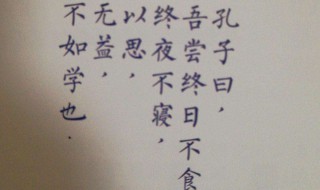 孔子曰，
吾尝终日不食
终夜不寝，
以思，
无益，
不如学也.